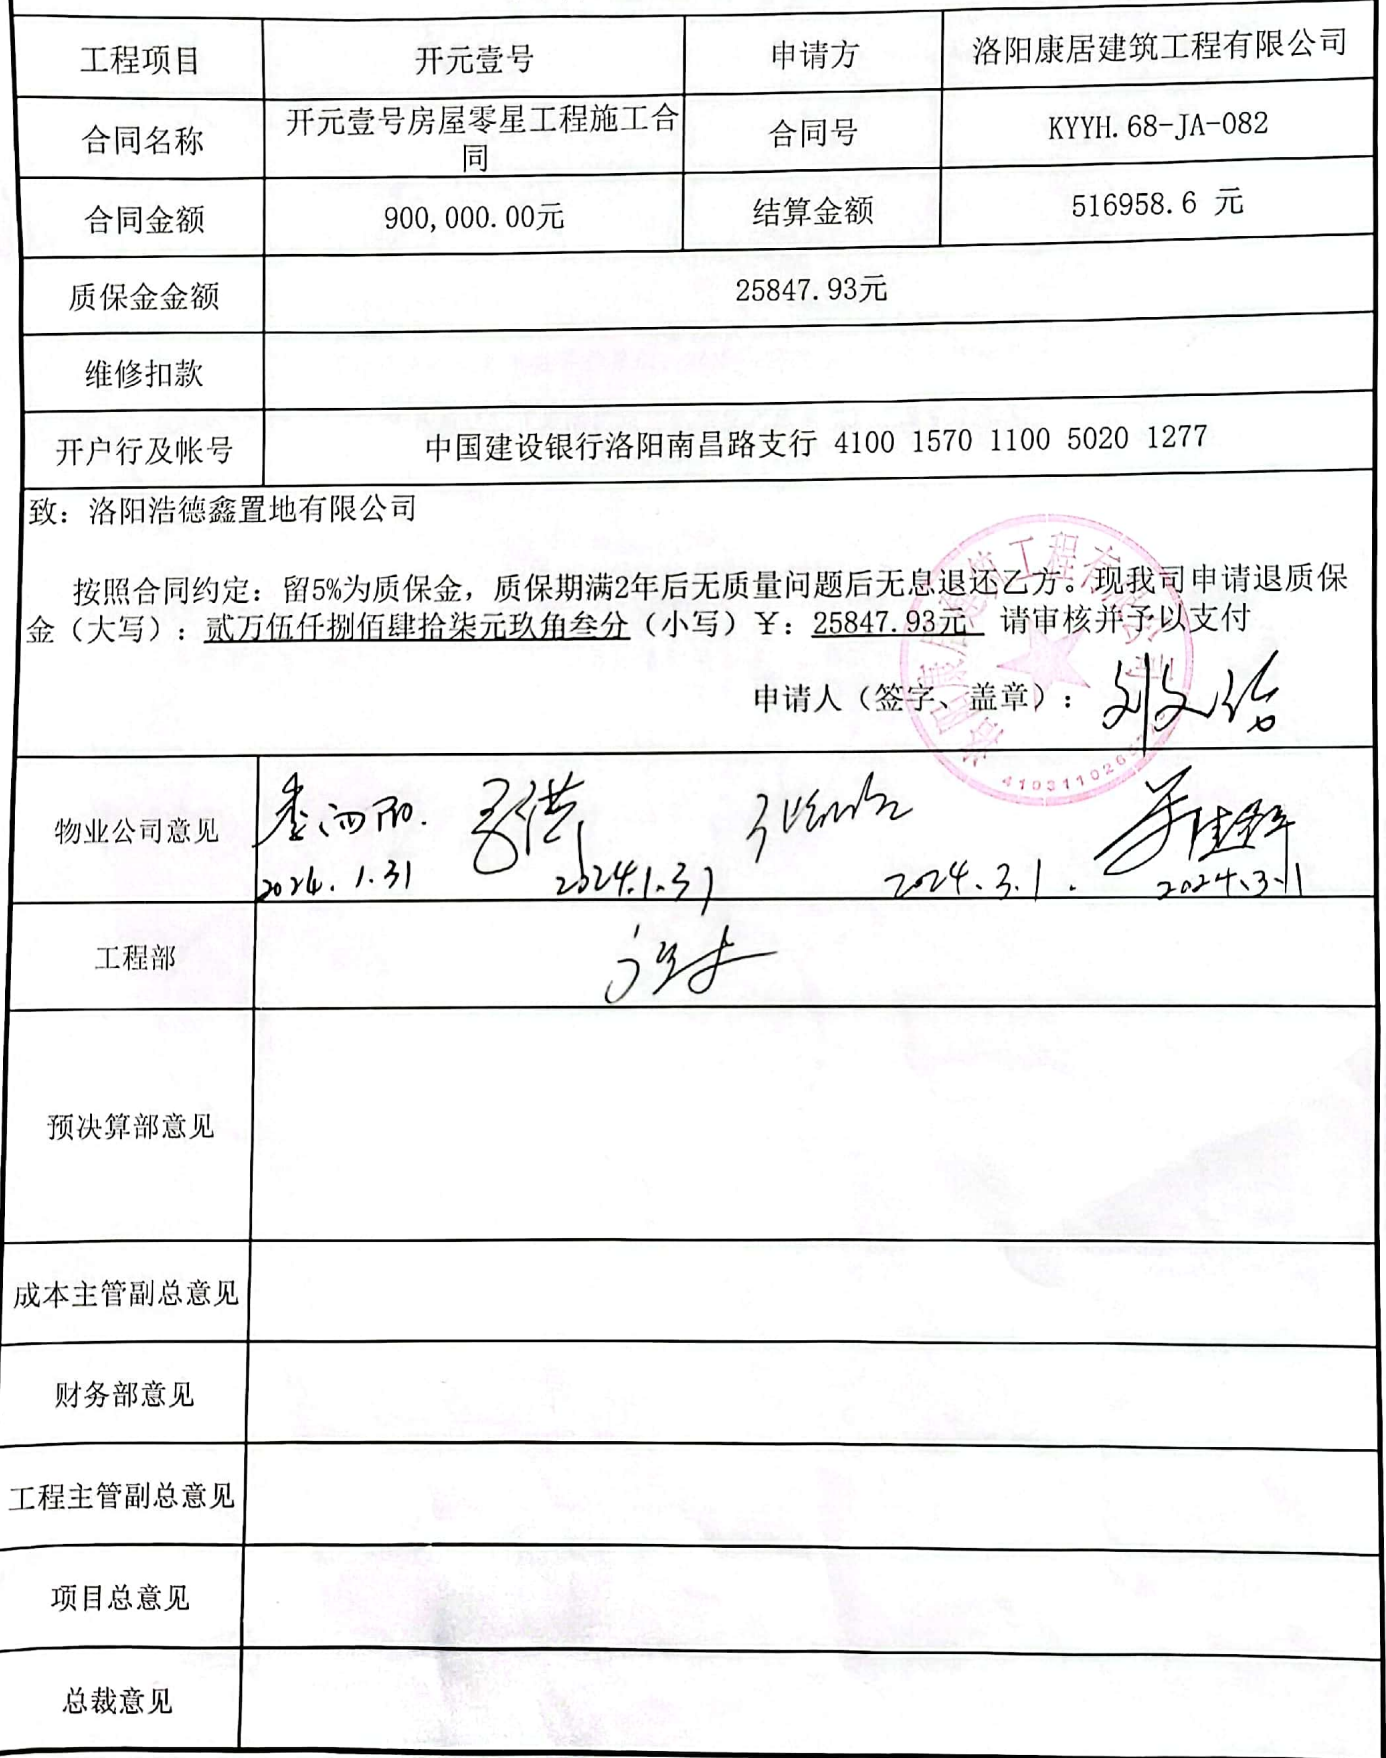 工程项目 开元壹号 申请方 洛阳康居建筑工程有限公司
合同名称 开元壹号房屋零星工程施工合
同 合同号 KYYH.68-JA-082
合同金额 900,000.00元 结算金额 516958.6 元
质保金金额 25847.93元
维修扣款
开户行及帐号 中国建设银行洛阳南昌路支行 4100 1570 1100 5020 1277
致：洛阳浩德鑫置地有限公司
按照合同约定：留5%为质保金，质保期满2年后无质量问题后无息退还乙方。现我司申请退质保
金（大写）：贰万伍仟捌佰肆拾柒元玖角叁分（小写）￥：25847.93元 请审核并予以支付
申请人（签字、盖章）：
物业公司意见
2024.1.31 2024.1.31 2024.3.1. 2024.3.1
工程部
预决算部意见
成本主管副总意见
财务部意见
工程主管副总意见
项目总意见
总裁意见